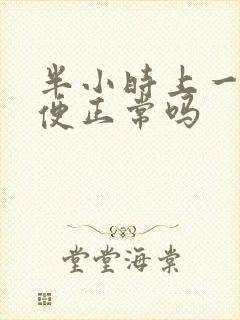 半小时上一
便正常吗
堂堂海棠